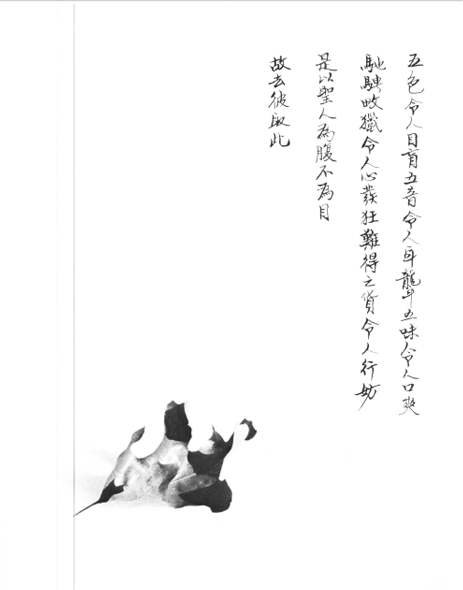 五色令人目盲五音令人耳聾五味令人口爽
馳騁畋獵令人心發狂難得之貨令人行妨
是以聖人為腹不為目
故去彼取此